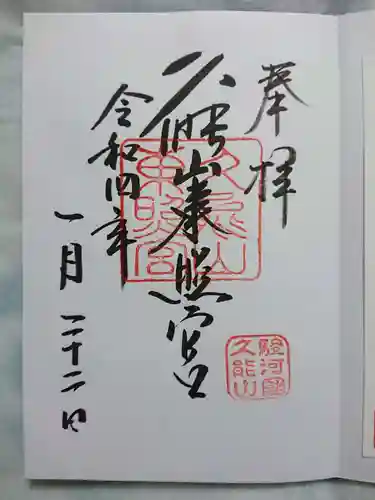 奉拝
久能山東照宮
久能山東照宮
駿河國久能山
令和四年
一月二十二日